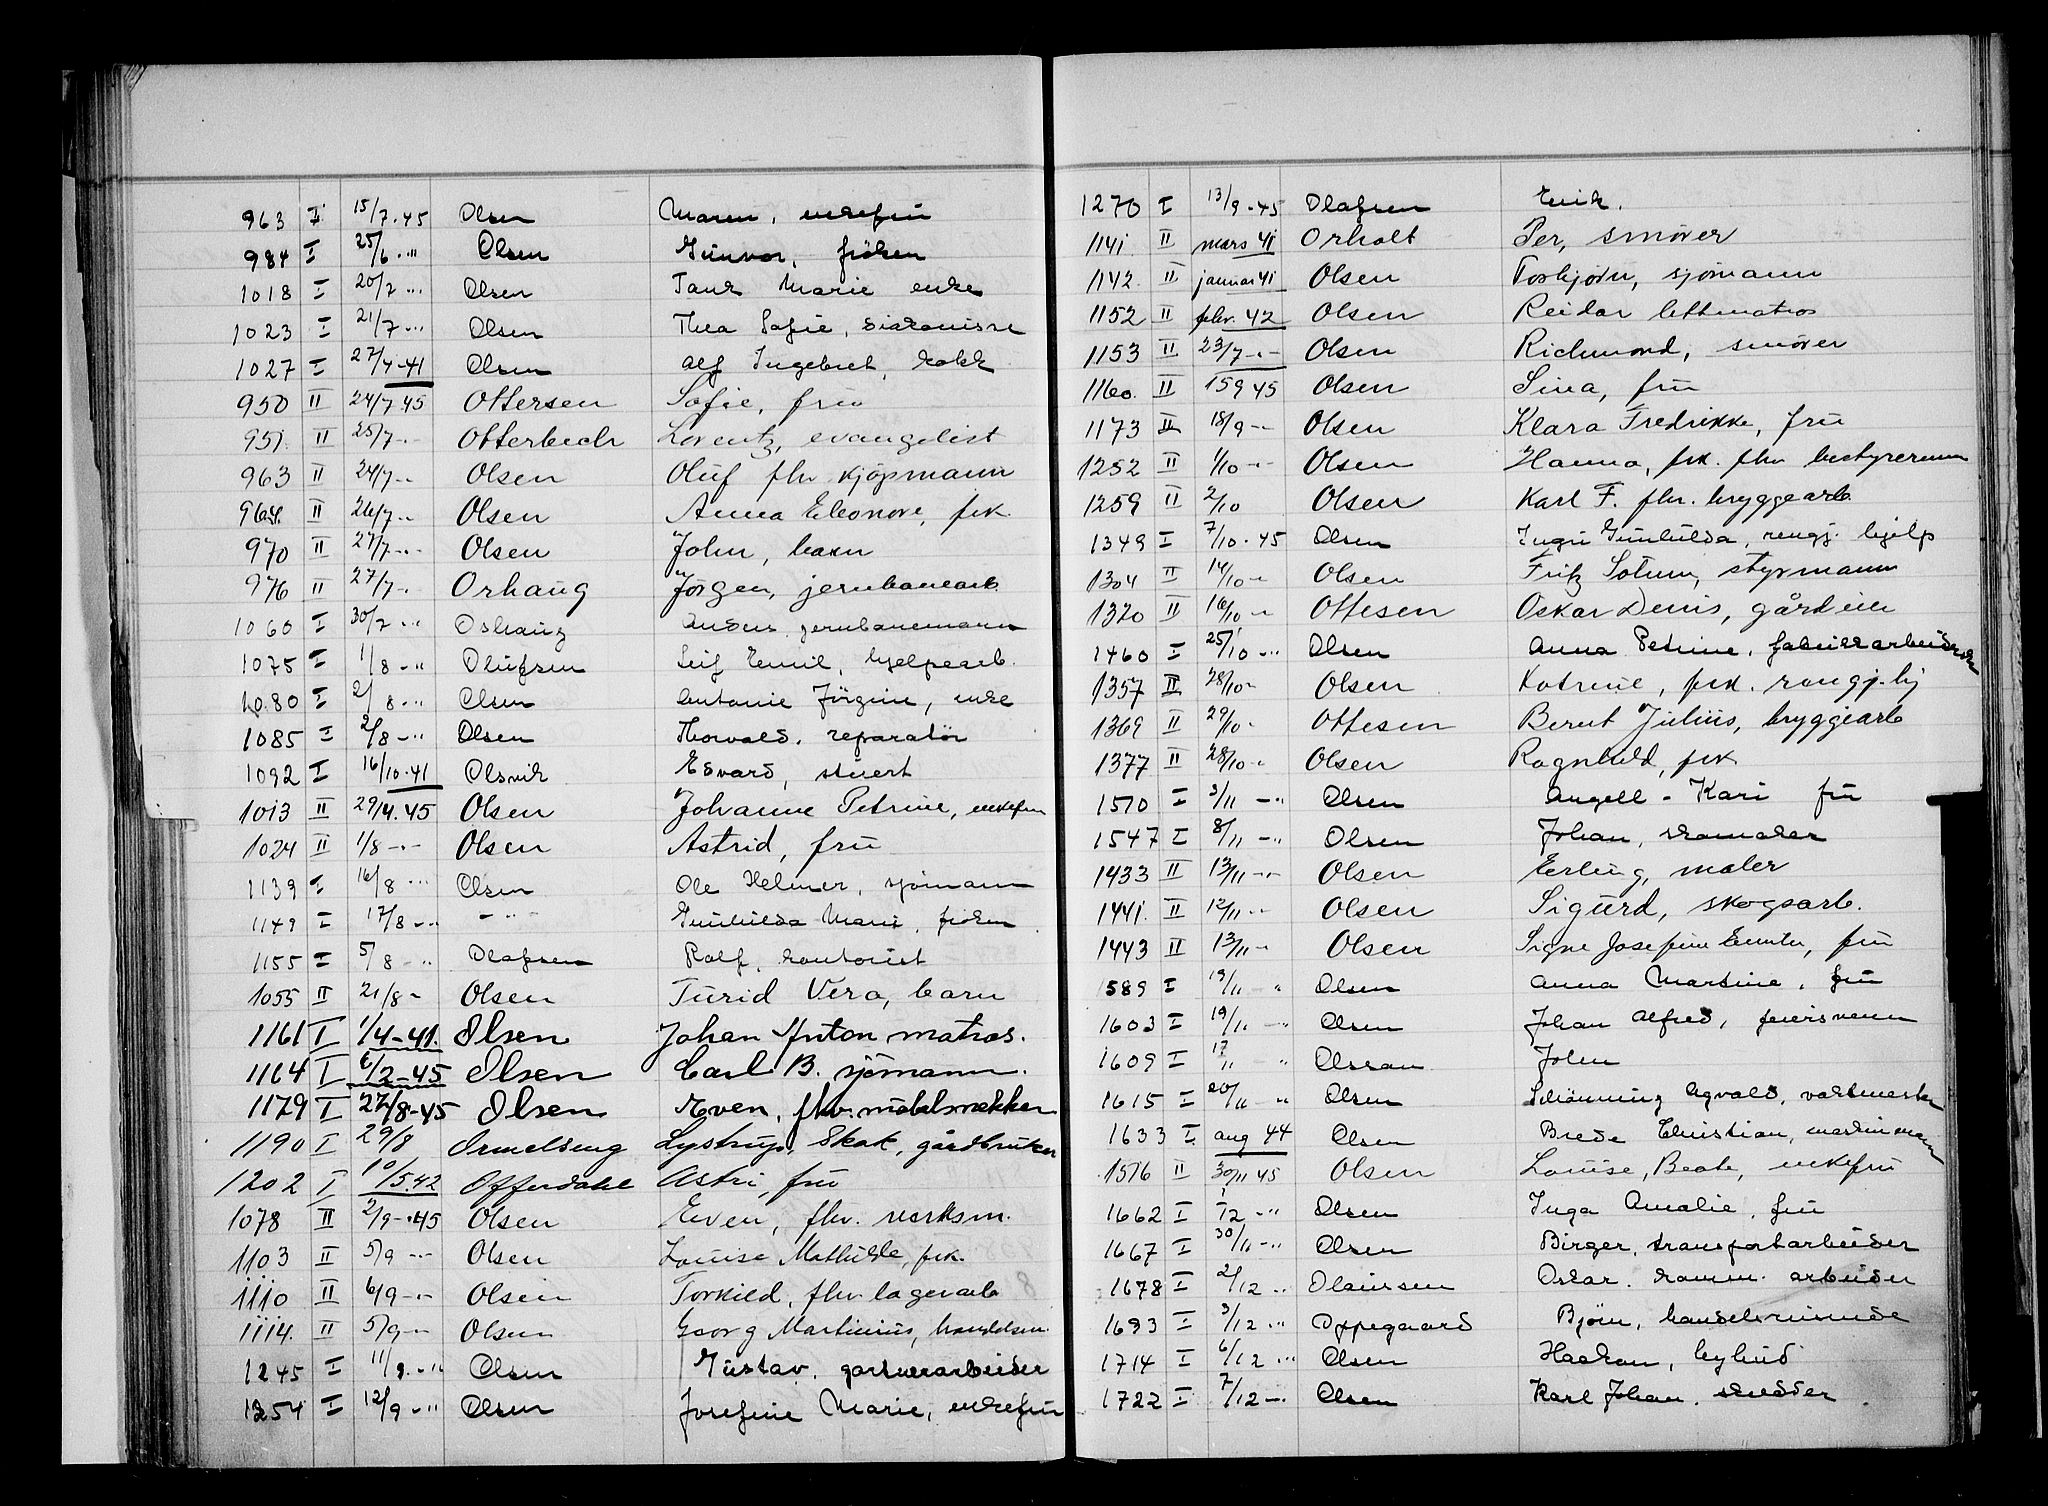 963 I 15/7-45 Olsen Maren, enkefru
984 I 25/6 -"- Olsen Gunvor, frøken
1018 I 20/7 -"- Olsen Marie enke
1023 I 21/7 -"- Olsen Thea Sofie, diakonisse
1027 I 27/4-41 Olsen Alf Ingebret, kokk
950 II 24/7.45 Ottersen Sofie, fru
951. II 25/7 -"- Otterbech Lorentz, evangelist
963 II 24/7 -"- Olsen Oluf fhv. kjøpmann
964. II 26/7 -"- Olsen Anna Eleonore, frk.
970 II 27/7 -"- Olsen John, barn
976 II 27/7 -"- Orhaug Jørgen, jernbanearb.
1060 I 30/7 -"- Oshaug Anders, jernbanemann
1075 I 1/8 -"- Olufsen Leif Emil, hjelpearb.
1080 I 2/8 -"- Olsen Antonie Jørgine, enke
1085 I 2/8 -"- Olsen Thorvald, reparatør
1092 I 16/10-41 Olsvik Edvard, stuert
1013 II 29/4.45 Olsen Johanne Petrine, enkefru
1024 II 1/8 -"- Olsen Astrid, fru
1139 I 16/8 -"- Olsen Ole Helmer, sjømann
1149 I 17/8 -"- -"- Gunhilda Marie, frøken
1155 I 5/8 -"- Olafsen Rolf, kontorist
1055 II 21/8 -"- Olsen Turid Vera, barn
1161 I 1/4-41. Olsen Johan Anton matros.
1164 I 6/2-45 Olsen Carl B. sjømann.
1179 I 27/8-45 Olsen Even, fhv. møbelsnekker
1190 I 29/8 Ormelseng Lystrup, Skak, gårdbruker
1202 I 10/5.42 Offerdahl Astri, fru
1078 II 2/9 -"-45 Olsen Even, fhv. verksm.
1103 II 5/9 -"- Olsen Louise Mathilde, frk.
1110 II 6/9 -"- Olsen Torkild, fhv lagerarb
1114. II 5/9 -"- Olsen Georg Martinius, handelsm.
1245 I 11/9 -"- Olsen Gustav, gartnerarbeider
1254 I 12/9 -"- Olsen Josefine Marie, enkefru
1270 I 13/9-45 Olafsen Erik.
1141. II mars 41 Orholt Per, smører
1142. II januar 41 Olsen Torbjørn, sjømann
1152 II febr. 42 Olsen Reidar lettmatros
1153 II 23/7 -"- Olsen Richmond, smører
1160. II 15 9 45 Olsen Sina, fru
1173 II 18/9 -"- Olsen Klara Fredrikke, fru
1252 II 1/10 -"- Olsen Hanna, frk. fhv bestyrerinne
1259 II 2/10 Olsen Karl F. fhv. bryggearb.
1349 I 7/10-45 Olsen Ingri Gunhilda, rengj. hjelp
1304 II 14/10 -"- Olsen Fritz, styrmann
1320 II 16/10 -"- Ottesen Oskar Denis, gårdeier
1460 I 25/10 -"- Olsen Anna Petrine, fabrikkarbeiderske
1357 II 28/10 - Olsen Katrine, frk. rengj.hj
1369 II 29/10 - Ottesen Bernt Julius, bryggearb
1377 II 28/10 -"- Olsen Ragnhild, frk
1510 I 3/11 -"- Olsen Angell - Kari fru
1547 I 8/11 -"- Olsen Johan, skomaker
1433 II 13/11 -"- Olsen Erling, maler
1441. II 12/11 -"- Olsen Sigurd, skogsarb.
1443 II 13/11 -"- Olsen Signe Josefine, fru
1589 I 19/11 -"- Olsen Anna Martine, fru
1603 I 19/11 -"- Olsen Johan Alfred, feiersvenn
1609 I 17/11 -"- Olssen John
1615 I 20/11 -"- Olsen Schønning Agvald, vaktmester
1633 I aug 44 Olsen Brede Christian, maskinmann
1516 II 30/11 45 Olsen Louise, Beate, enkefru
1662 I 1/12 -"- Olsen Inga Amalie, fru
1667 I 30/11 -"- Olsen Birger, transportarbeider
1678 I 2/12 -"- Olaussen Oskar, komm. arbeider
1693 I 3/12 -"- Oppegaard Bjørn, handelsreisende
1714 I 6/12 -"- Olsen Haakon, bybud
1722 I 7/12 -"- Olsen Karl Johan, skredder